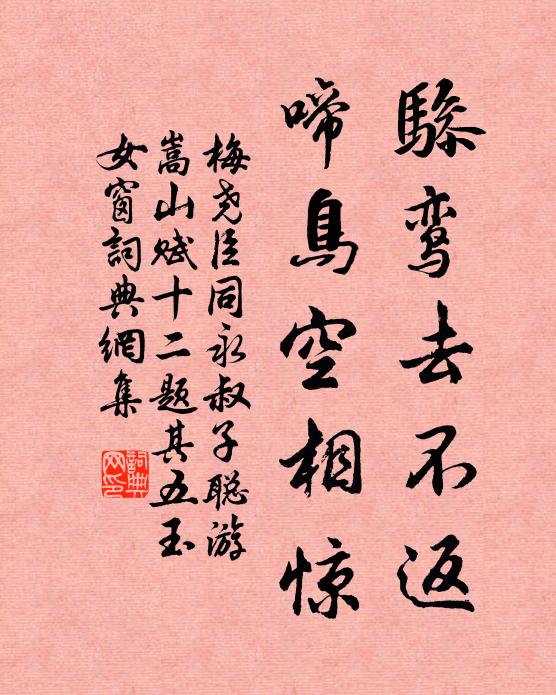 骖鸾去不返
啼鸟空相惊
梅尧臣同永叔子聪游
嵩山赋十二题其五玉
女窗詞典網集